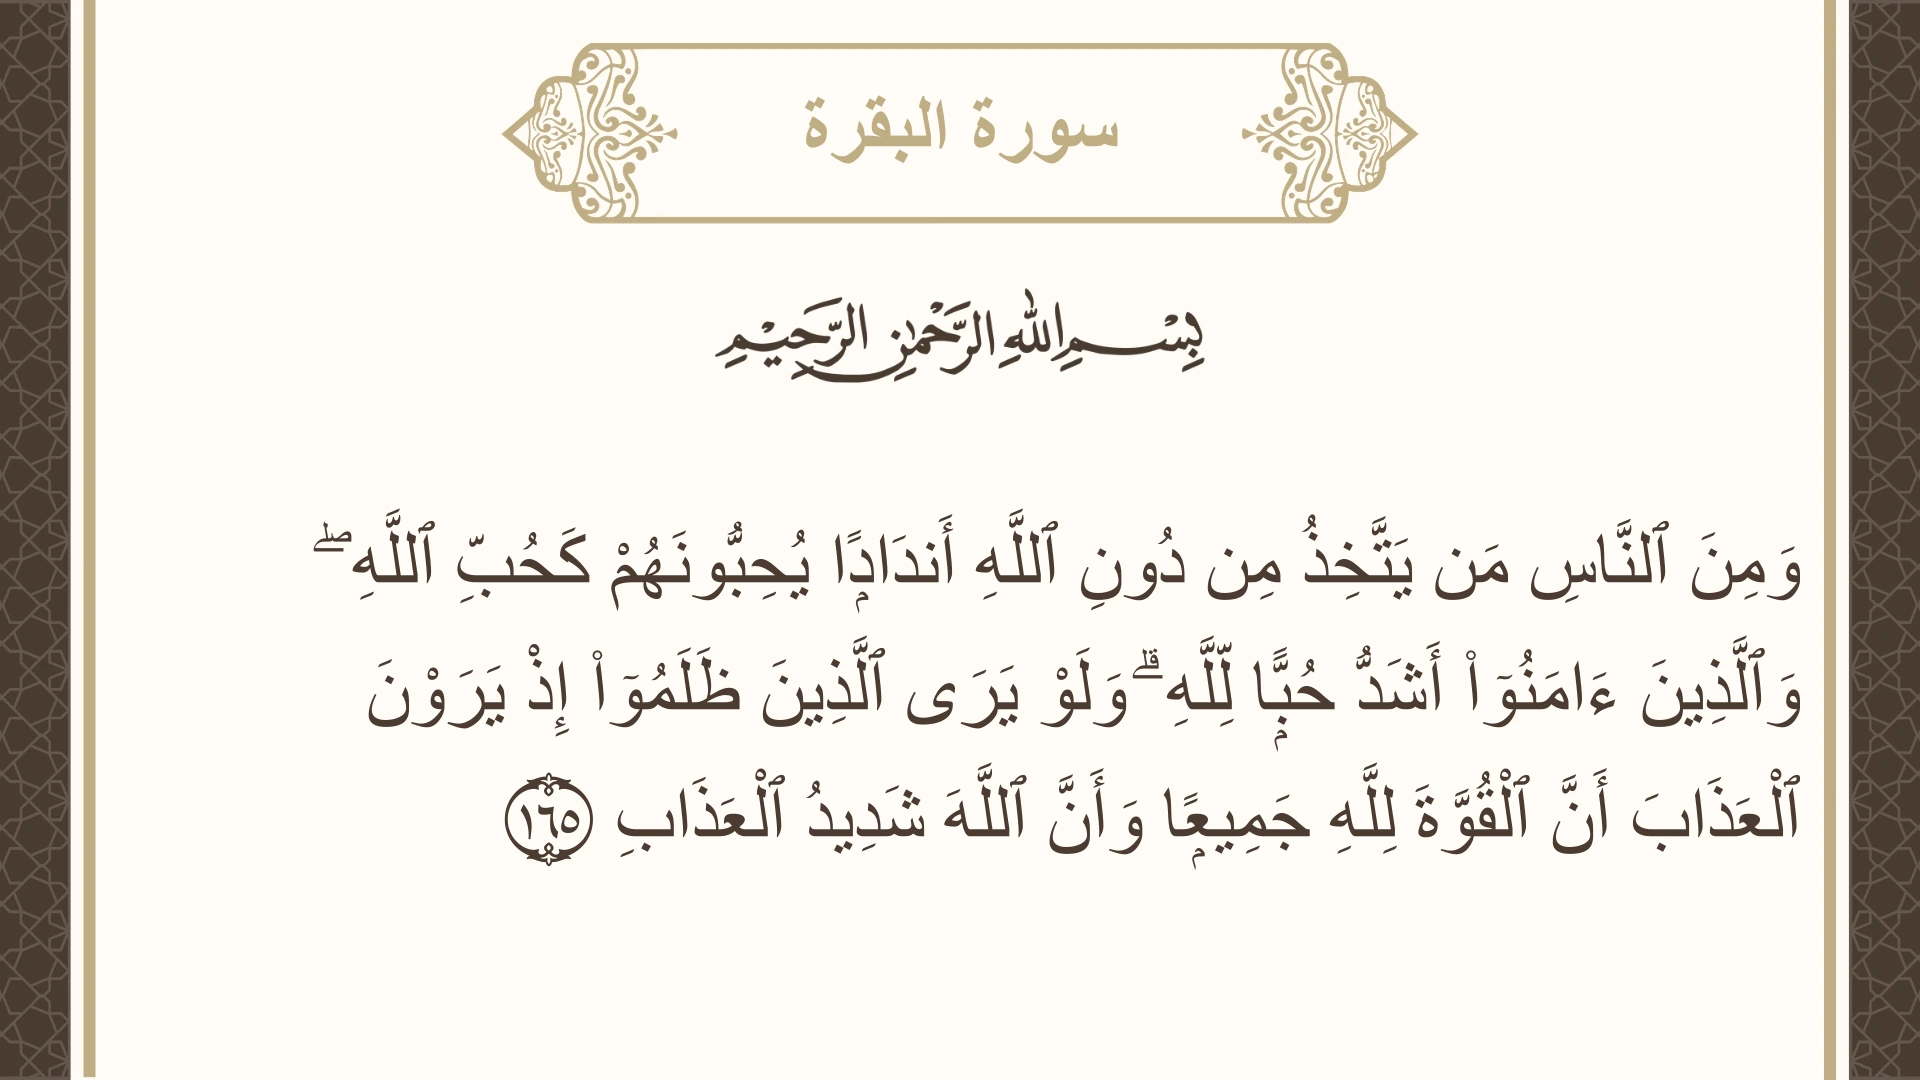 سورة البقرة
بِسْمِ اللهِ الرَّحْمٰنِ الرَّحِيْمِ
وَمِنَ ٱلنَّاسِ مَن يَتَّخِذُ مِن دُونِ ٱللَّهِ أَندَادًۭا يُحِبُّونَهُمْ كَحُبِّ ٱللَّهِ ۖ
وَٱلَّذِينَ ءَامَنُوٓا۟ أَشَدُّ حُبًّۭا لِّلَّهِ ۗ وَلَوْ يَرَى ٱلَّذِينَ ظَلَمُوٓا۟ إِذْ يَرَوْنَ
ٱلْعَذَابَ أَنَّ ٱلْقُوَّةَ لِلَّهِ جَمِيعًۭا وَأَنَّ ٱللَّهَ شَدِيدُ ٱلْعَذَابِ ١٦٥